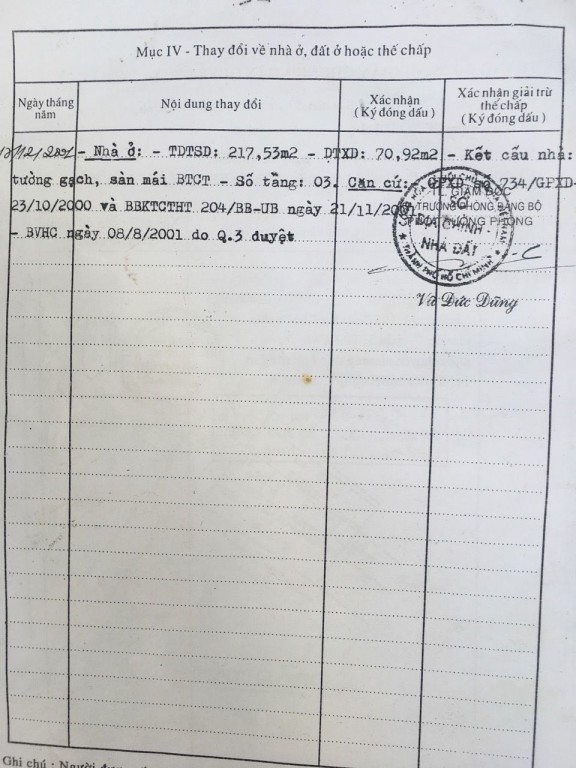 Mục IV - Thay đổi về nhà ở, đất ở hoặc thế chấp
Ngày tháng năm
Nội dung thay đổi
Xác nhận
(Ký đóng dấu)
Xác nhận giải trừ
thế chấp
(Ký đóng dấu)
- Nhà ở: - TDTSD: 217,53m2 - DTXD: 70,92m2 - Kết cấu nhà:
tường gạch, sàn mái BTCT - Số tầng: 03. Căn cứ: 734/GPXD-
23/10/2000 và BBKTCTHT 204/BB-UB ngày 21/11/
- BVHC ngày 08/8/2001 do Q.3 duyệt
GIÁM ĐỐC
TRƯỞNG PHÒNG ĐĂNG BỘ
SỞ
ĐỊA CHÍNH -
NHÀ ĐẤT
★ THÀNH PHỐ HỒ CHÍ MINH ★
Võ Đức Dũng
Ghi chú : Người